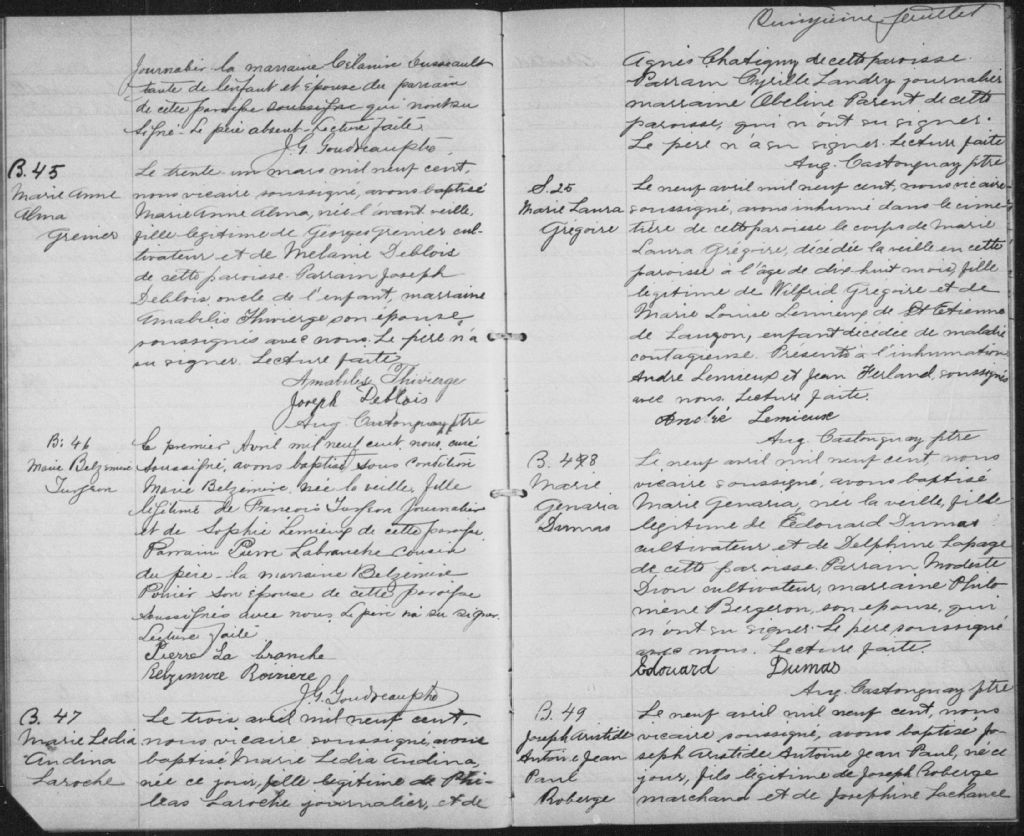 Journalier la marraine Célanire Dussault
tante de l'enfant et épouse du parrain
de cette paroisse soussigné qui n'ont su
signé. Le père absent. Lecture faite
J.G. Goudreau ptre
B. 45
Marie Anne
Alma
Grenier
Le trente un mars mil neuf cent,
nous vicaire soussigné, avons baptisé
Marie Anne Alma, née l'avant veille,
fille légitime de Georges Grenier cul-
tivateur et de Mélanie Deblois
de cette paroisse. Parrain Joseph
Deblois, oncle de l'enfant, marraine
Amabilis Thivierge son épouse,
soussignés avec nous. Le père n'a
su signer. Lecture faite
Amabilis Thivierge
Joseph Deblois
Aug. Castonguay ptre
B. 46
Marie Belzemire
Turgeon
Le premier Avril mil neuf cent nous, curé
soussigné, avons baptisé sous condition
Marie Belzemire, née la veille, fille
légitime de Francois Turgeon Journalier
et de Sophie Lemieux de cette paroisse.
Parrain Pierre Labranche cousin
du père - la marraine Belzemire
Poirier son épouse de cette paroisse
soussignés avec nous. Le père n'a su signer.
Lecture faite
Pierre La branche
Belzimire Poiriere
J.G. Goudreau ptre
B. 47
Marie Ledia
Andina
Laroche
Le trois avril mil neuf cent,
nous vicaire soussigné, avons
baptisé Marie Ledia Andina,
née ce jour, fille légitime de Phi-
leas Laroche journalier, et de
Quinzième feuillet
Agnès Chatigny de cette paroisse.
Parrain Cyrille Landry journalier
marraine Obeline Parent de cette
paroisse, qui n'ont su signer.
Le père n'a su signer. Lecture faite
Aug. Castonguay ptre
S. 25
Marie Laura
Grégoire
Le neuf avril mil neuf cent, nous vicaire
soussigné, avons inhumé dans le cime-
tière de cette paroisse le corps de Marie
Laura Grégoire, décédée la veille en cette
paroisse à l'âge de dix huit mois, fille
légitime de Wilfrid Grégoire et de
Marie Louise Lemieux de St Etienne
de Lauzon, enfant décédée de maladie
contagieuse. Présents à l'inhumation
André Lemieux et Jean Ferland, soussignés
avec nous. Lecture faite.
André Lemieux
Aug. Castonguay ptre
B. 48
Marie
Genaria
Dumas
Le neuf avril mil neuf cent, nous
vicaire soussigné, avons baptisé
Marie Genaria, née la veille, fille
légitime de Édouard Dumas
cultivateur et de Delphine Lapage
de cette paroisse. Parrain Modeste
Dion cultivateur, marraine Philo-
mène Bergeron, son épouse, qui
n'ont su signer. Le père soussigné
avec nous. Lecture faite.
Edouard Dumas
Aug. Castonguay ptre
B. 49
Joseph Aristide
Antoine Jean
Paul
Roberge
Le neuf avril mil neuf cent, nous
vicaire, soussigné, avons baptisé Jo-
seph Aristide Antoine Jean Paul, né ce
jour, fils légitime de Joseph Roberge
marchand et de Josephine Lachance